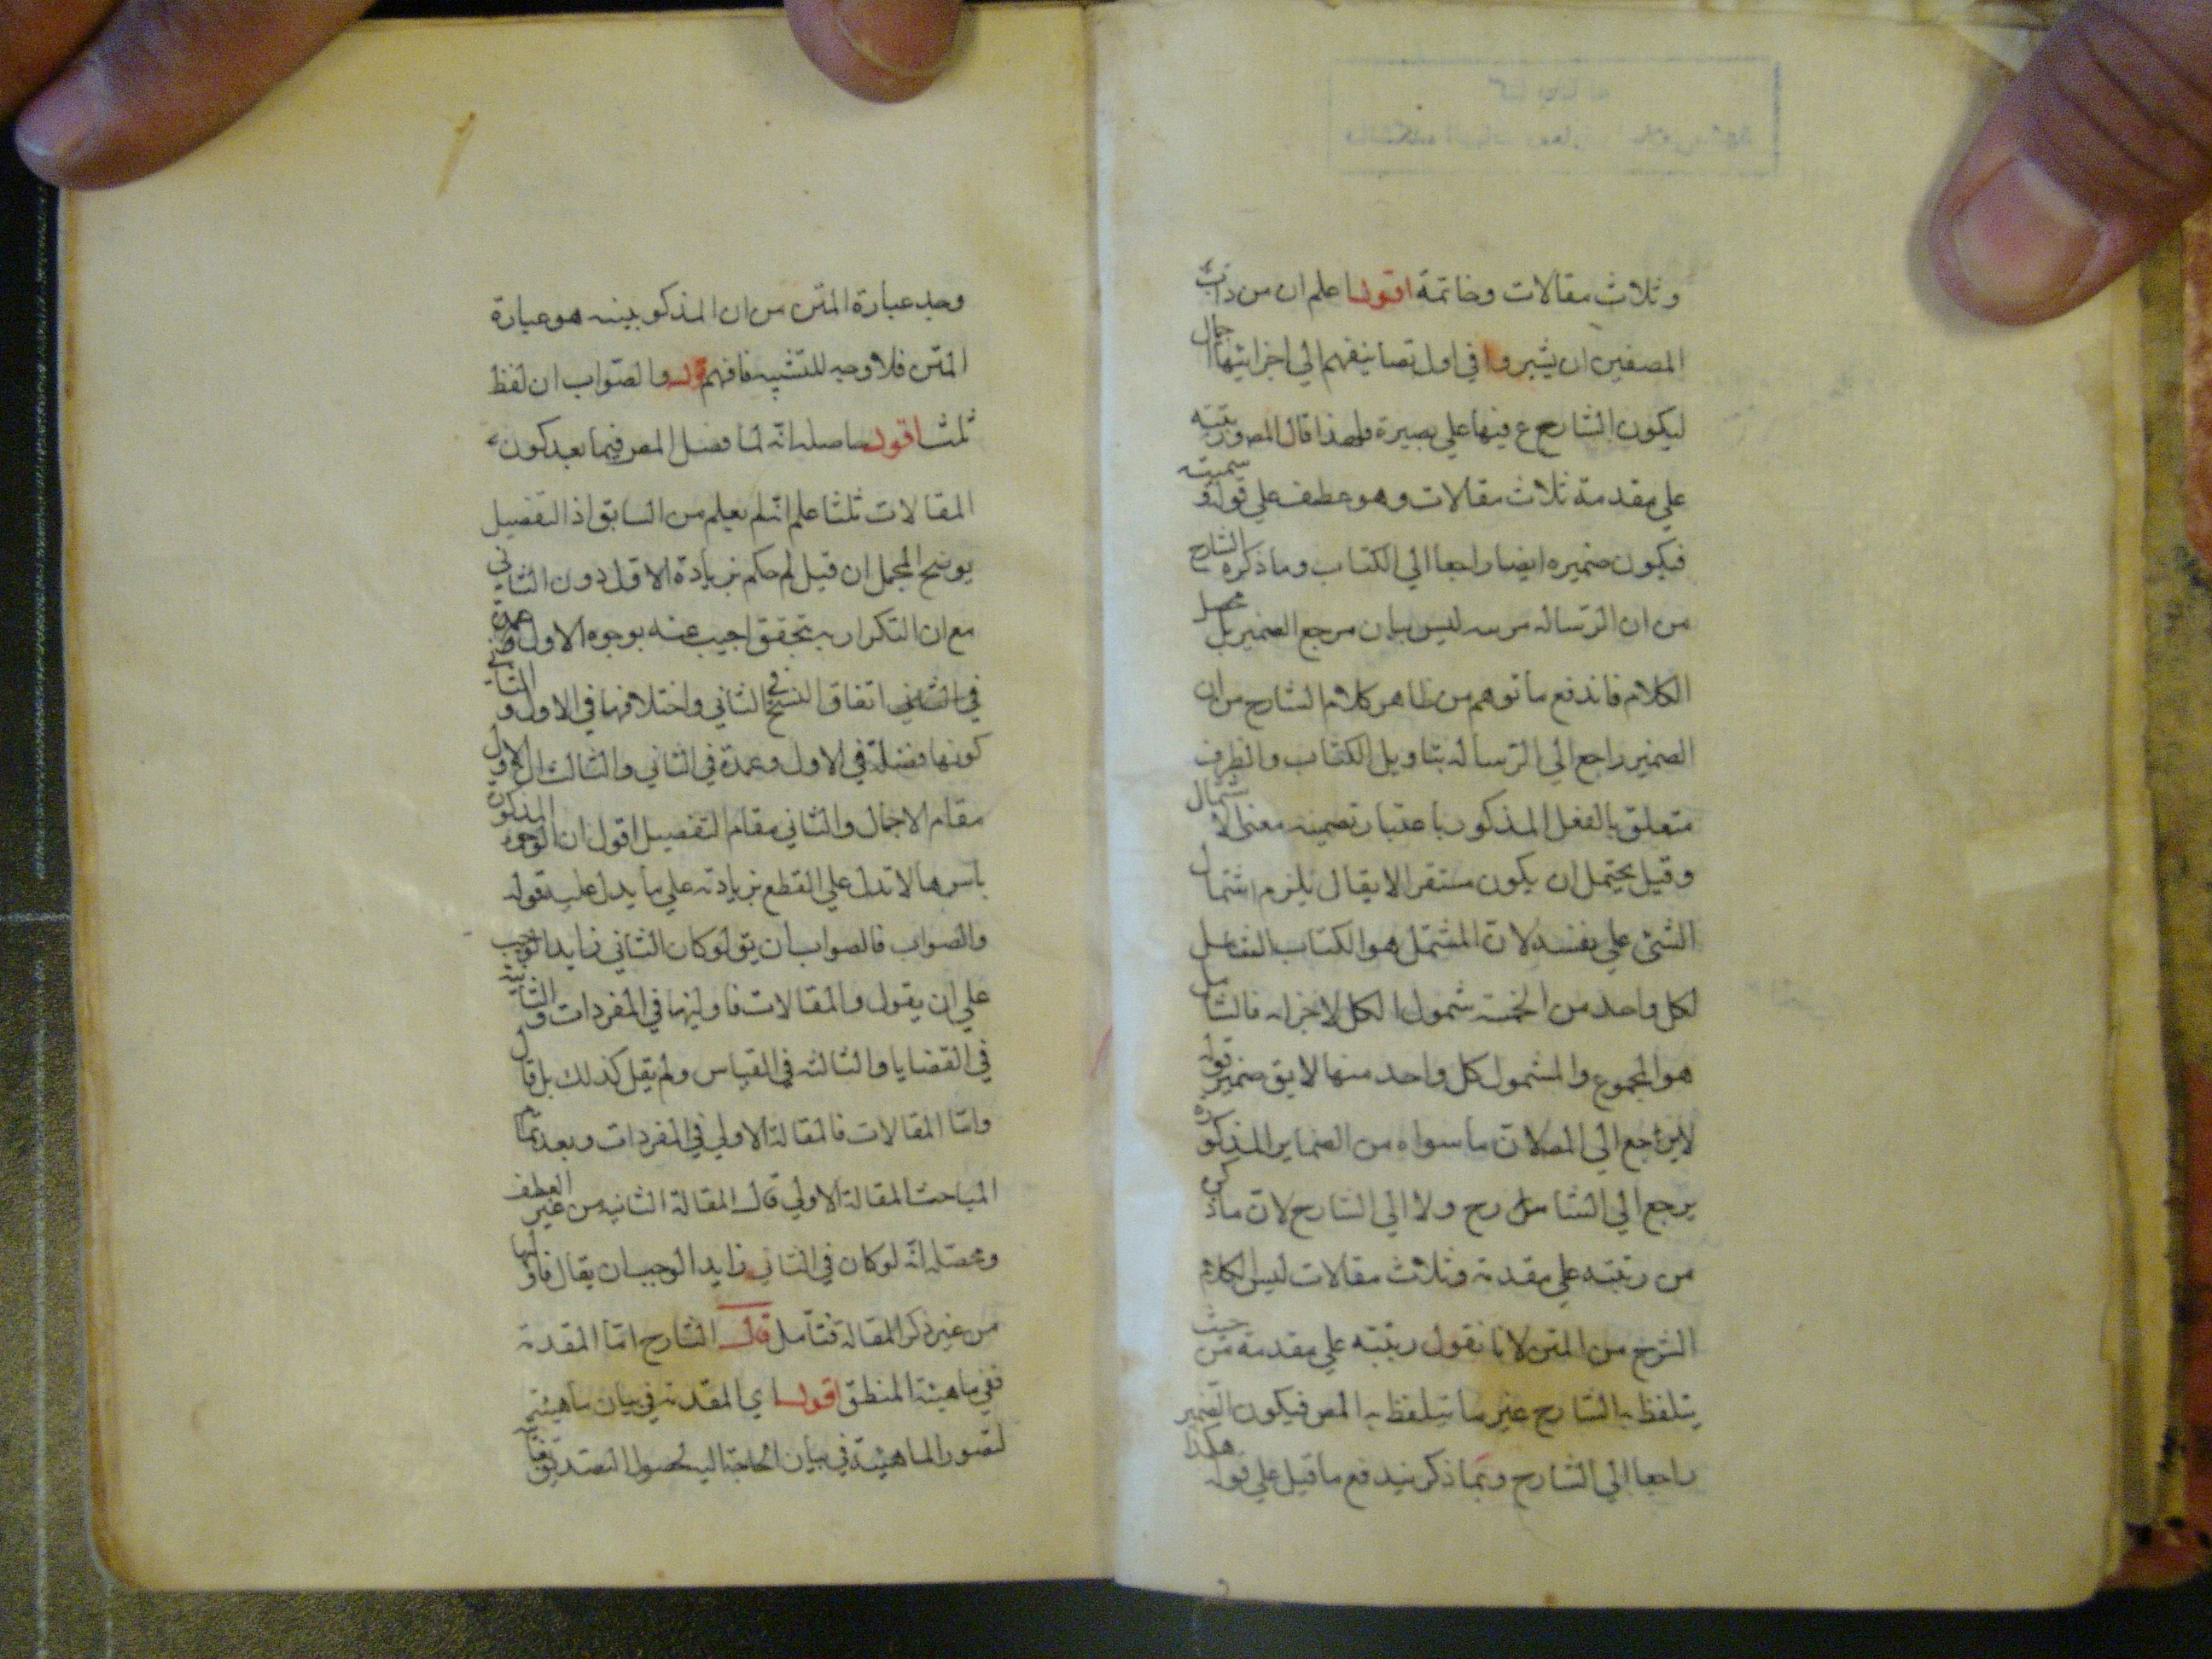 وثلاث مقالات وخاتمة اقول اعلم ان من داب
المصنفين ان يشيروا في اول تصانيفهم الي اجزائها اجمال
ليكون الشارع فيها علي بصيرة ولهذا قال المص ورتبته
علي مقدمة ثلاث مقالات وهو عطف علي قوله وسميته
فيكون ضميره ايضا راجعا الي الكتاب وما ذكره الشارح
من ان الرسالة مرتبه ليس بيان مرجع الضمير بل محصل
الكلام فاندفع ما توهم من ظاهر كلام الشارح من ان
الضمير راجع الي الرسالة بتاويل الكتاب والظرف
متعلق بالفعل المذكور باعتبار تضمينه معني الاشتمال
وقيل يحتمل ان يكون مستقرا لا يقال يلزم اشتمال
الشئ علي نفسه لان المشتمل هو الكتاب الشامل
لكل واحد من الخمسة شمول الكل لاجزائه فالشامل
هو المجموع والمشمول كل واحد منها لا يق ضمير قوله
لا يرجع الي المص لان ما سواه من الضماير المذكورة
يرجع الي الشارح ولا الي الشارح لان ما ذكر
من رتبته علي مقدمة وثلاث مقالات ليس الكلام
الشرح من المتن لانا نقول رتبته علي مقدمة من حيث
يتلفظ به الشارح غير ما يتلفظ به المص فيكون الضمير
راجعا الي الشارح وبما ذكر يندفع ما قيل علي قوله هكذا
وجد عبارة المتن من ان المذكور بينه هو عبارة
المتن فلا وجه للتشبيه فافهم قوله والصواب ان لفظ
ثلث اقول حاصله انه لما فصل المص فيما بعد كون
المقالات ثلثا علم انه لم يعلم من السابق اذ التفصيل
يوضح المجمل ان قيل لم حكم بزيادة الاول دون الثاني
مع ان التكرار به يتحقق اجيب عنه بوجوه الاول
في اتفاق النسخ في الثاني واختلافها في الاول والثاني
كونها فضلة في الاول وعمدة في الثاني والثالث ان الاول
مقام الاجمال والثاني مقام التفصيل اقول ان الوجوه المذكورة
باسرها لا تدل علي القطع بزيادته علي ما يدل عليه قوله
والصواب فالصواب ان يق لو كان الثاني زايدا لوجب
علي ان يقول والمقالات فاوليها في المفردات والثانية
في القضايا والثالثة في القياس ولم يقل كذلك بل قال
واما المقالات فالمقالة الاولي في المفردات وبعد تمام
المباحث المقالة الاولي قال المقالة الثانية من غير العطف
ومحصله انه لو كان في الثاني زايدا لوجب ان يقال فاوليها
من غير ذكر المقالة فتأمل قال الشارح اما المقدمة
ففي ماهية المنطق اقول اي المقدمة في بيان ماهيته
لتصور الماهية في بيان الحاجة اليه لحصول التصديق